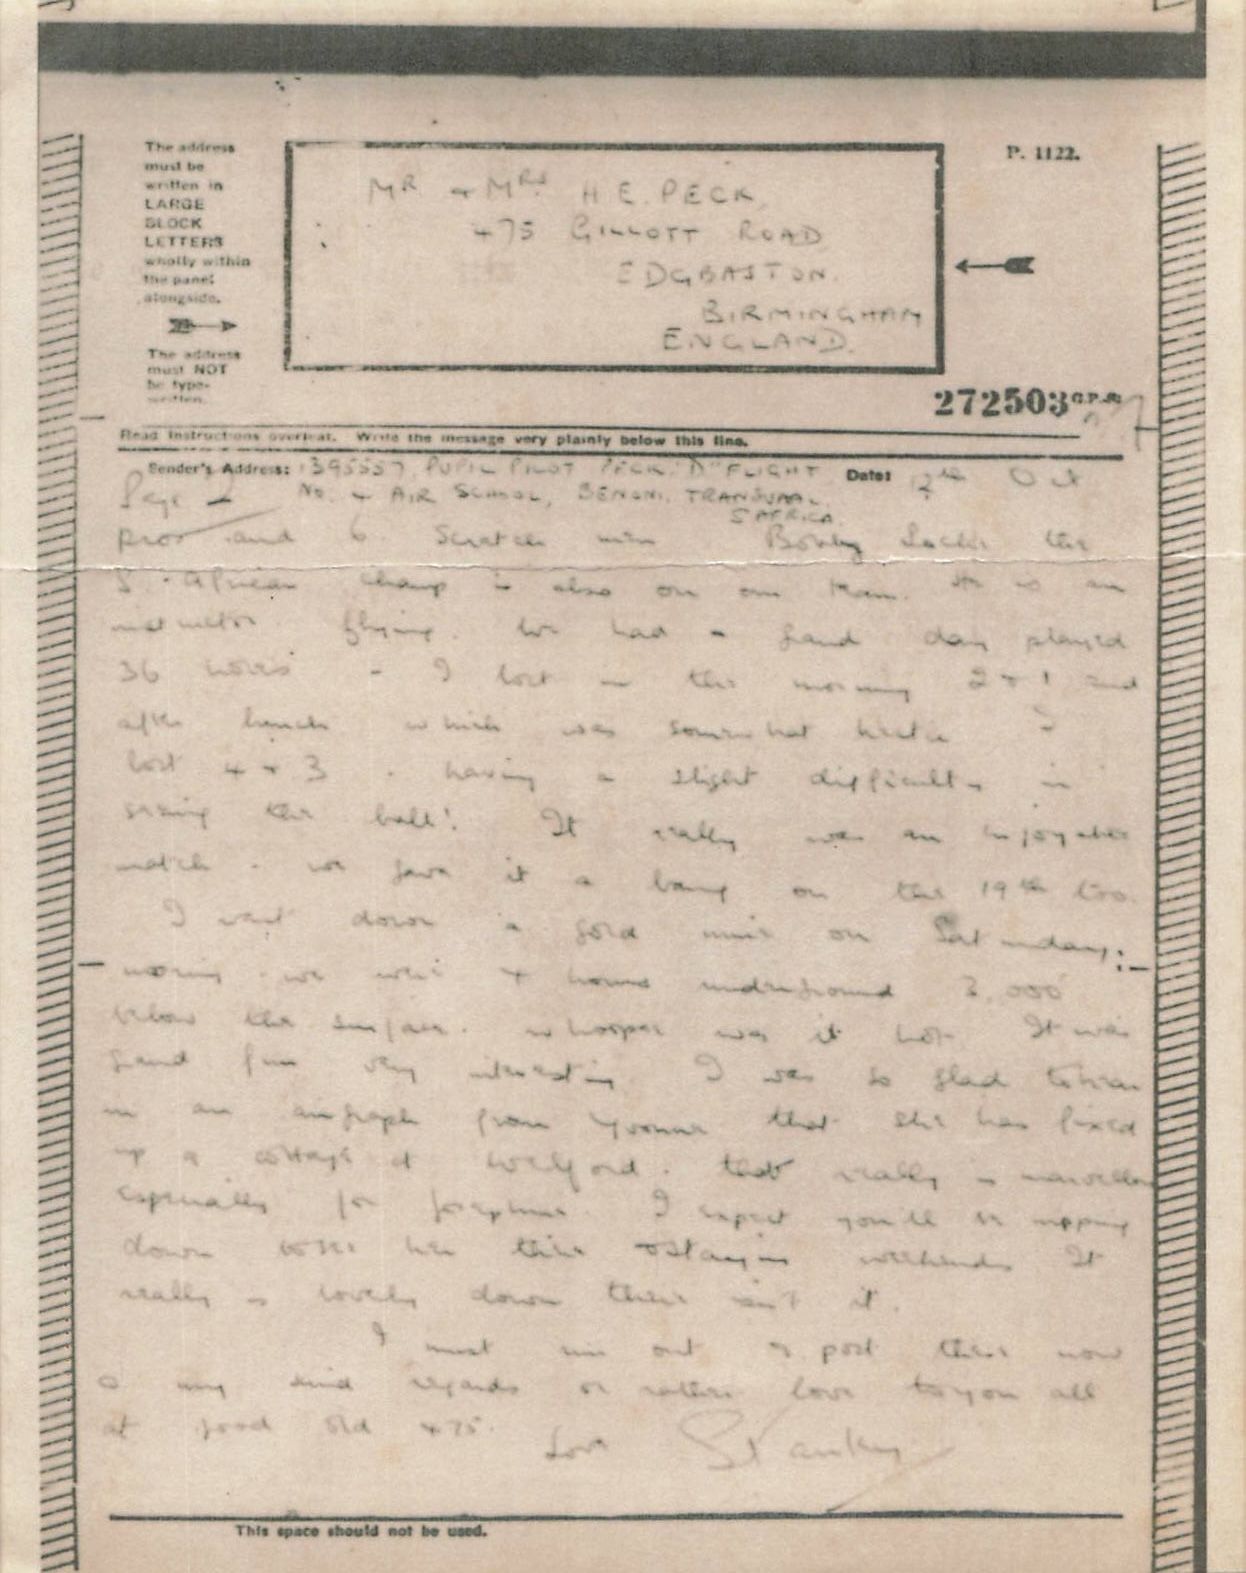 The address
must be
written in
LARGE
BLOCK
LETTERS
wholly within
the panel
alongside.
The address
must NOT
be type-
written.
MR + MRS H E. PECK,
475 GILLOTT ROAD
EDGBASTON.
BIRMINGHAM
ENGLAND.
P. 1122.
272503
Read instructions overleaf. Write the message very plainly below this line.
Sender's Address: 1395557 PUPIL PILOT PECK "D" FLIGHT Date: 12th Oct
Page 2 No. 4 AIR SCHOOL, BENONI, TRANSVAAL.
S AFRICA.
pros and 6 scratch men Bobby Locke the
S. African champ is also on our team. He is an
instructor flying. We had a grand day played
36 holes - I lost in the morning 2 + 1 and
after lunch which was somewhat hectic I
lost 4 + 3 - having a slight difficulty in
seeing the ball! It really was an enjoyable
match - we gave it a bang on the 19th too.
I went down a gold mine on Saturday
morning - we were 4 hours underground 3,000'
below the surface. whoopee was it hot. It was
grand fun very interesting I was so glad to hear
in an airgraph from Yvonne that she has fixed
up a cottage at Welford. that really is marvellous
especially for Josephine. I expect you'll be nipping
down to see her there + staying weekends It
really is lovely down there isn't it.
I must run out & post these now
so my kind regards or rather love to you all
at good old 475.
Love Stanley
This space should not be used.